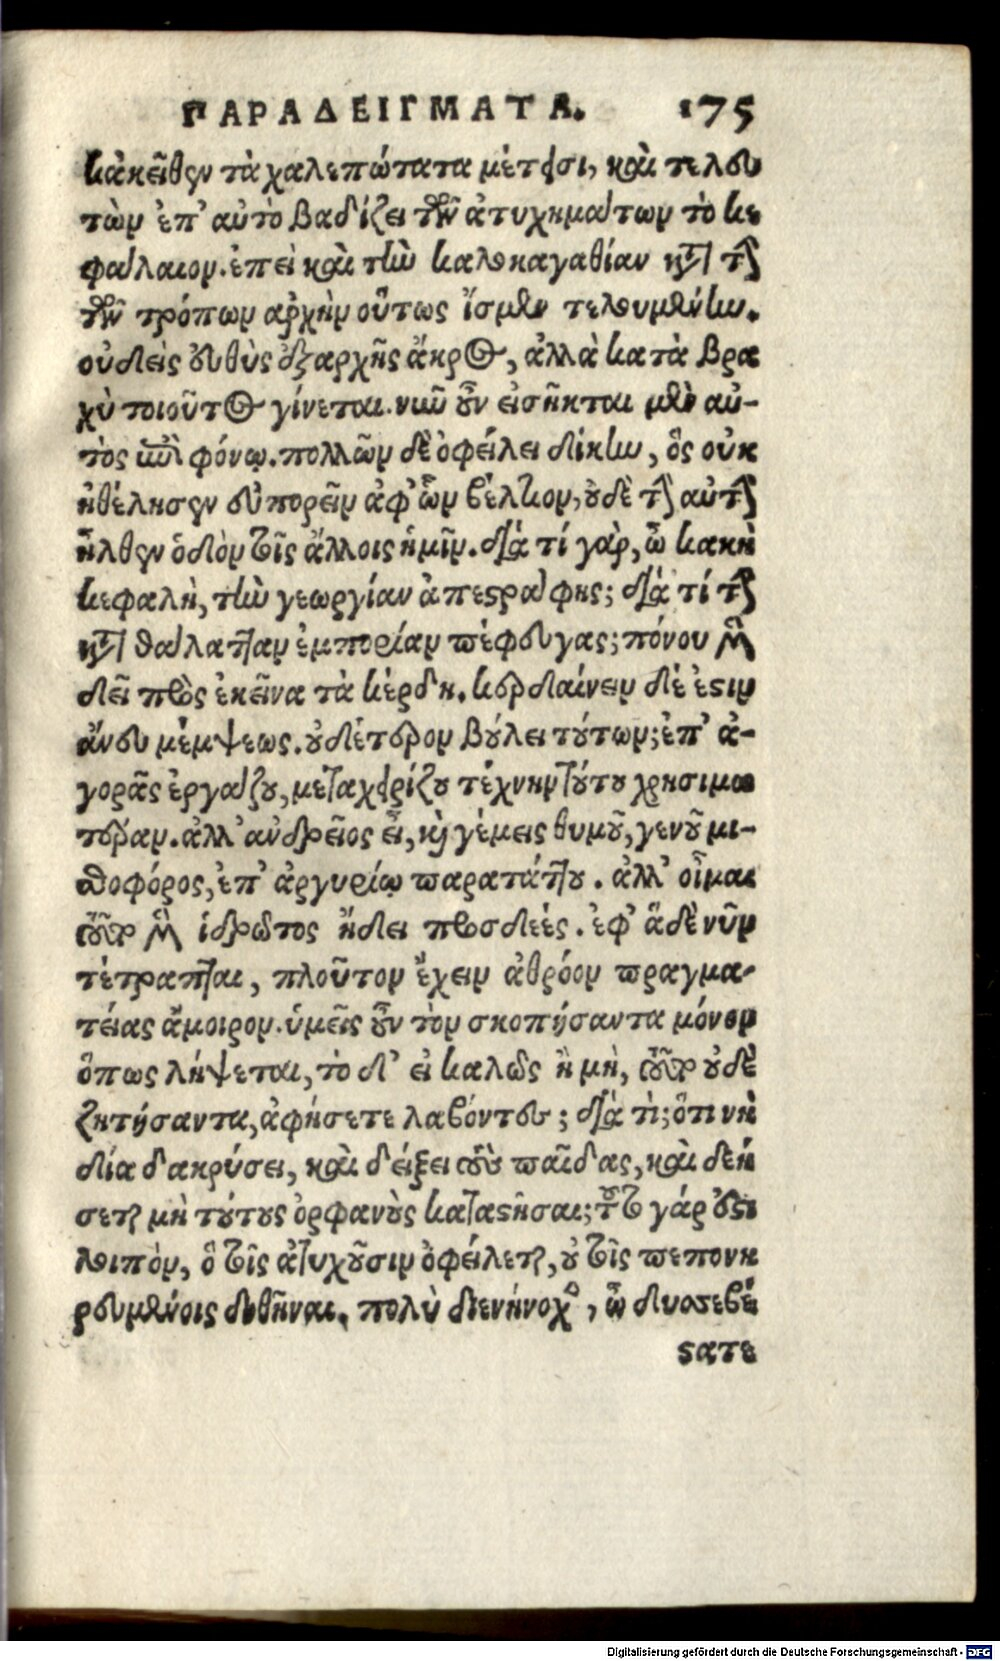 ΠΑΡΑΔΕΙΓΜΑΤΑ. 175
κἀκεῖθεν τὰ χαλεπώτατα μέτεισι, καὶ τελευ
τῶν ἐπ' αὐτὸ βαδίζει τῶν ἀτυχημάτων τὸ κε
φάλαιον. ἐπεὶ καὶ τὴν καλοκαγαθίαν κατὰ τὴν
τῶν τρόπων ἀρχὴν οὕτως ἴσμεν τελουμένην.
οὐδεὶς εὐθὺς ἐξαρχῆς ἄκρος, ἀλλὰ κατὰ βρα
χὺ τοιοῦτος γίνεται. νῦν οὖν εἰσῆκται μὲν αὐ-
τὸς ἐπὶ φόνῳ. πολλῶν δὲ ὀφείλει δίκην, ὃς οὐκ
ἠθέλησεν εὐπορεῖν ἀφ' ὧν βέλτιον, οὐδὲ τὴν αὐτὴν
ἦλθεν ὁδὸν τοῖς ἄλλοις ἡμῖν. διὰ τί γὰρ, ὦ κακὴ
κεφαλὴ, τὴν γεωργίαν ἀπεστράφης; διὰ τί τὴν
κατὰ θάλατταν ἐμπορίαν πέφευγας; πόνου μὲν
δεῖ πρὸς ἐκεῖνα τὰ κέρδη. κερδαίνειν δέ ἐστιν
ἄνευ μέμψεως. οὐδέτερον βούλει τούτων; ἐπ' ἀ-
γορᾶς ἐργάζου, μεταχειρίζου τέχνην τούτου χρησιμω
τέραν. ἀλλ' ἀνδρεῖος εἶ, καὶ γέμεις θυμοῦ, γενοῦ μι-
σθοφόρος, ἐπ' ἀργυρίῳ παρατάττου. ἀλλ' οἶμαι
ταῦτα μὲν ἱδρῶτος ᾔδει προσδεές. ἐφ' ἃ δὲ νῦν
τέτραπται, πλοῦτον ἔχειν ἀθρόον πραγμα-
τείας ἄμοιρον. ὑμεῖς οὖν τὸν σκοπήσαντα μόνον
ὅπως λήψεται, τὸ δ' εἰ καλῶς ἢ μὴ, ταῦτα οὐδὲ
ζητήσαντα, ἀφήσετε λαβόντες; διὰ τί; ὅτι νὴ
δία δακρύσει, καὶ δείξει τοὺς παῖδας, καὶ δεή
σεται μὴ τούτους ὀρφανοὺς καταστῆσαι; τοῦτο γάρ ἐστι
λοιπὸν, ὃ τοῖς ἀτυχοῦσιν ὀφείλεται, οὐ τοῖς πεπονη
ρευμένοις δοθῆναι. πολὺ διενήνοχεν, ὦ δυσσεβέ
στατε